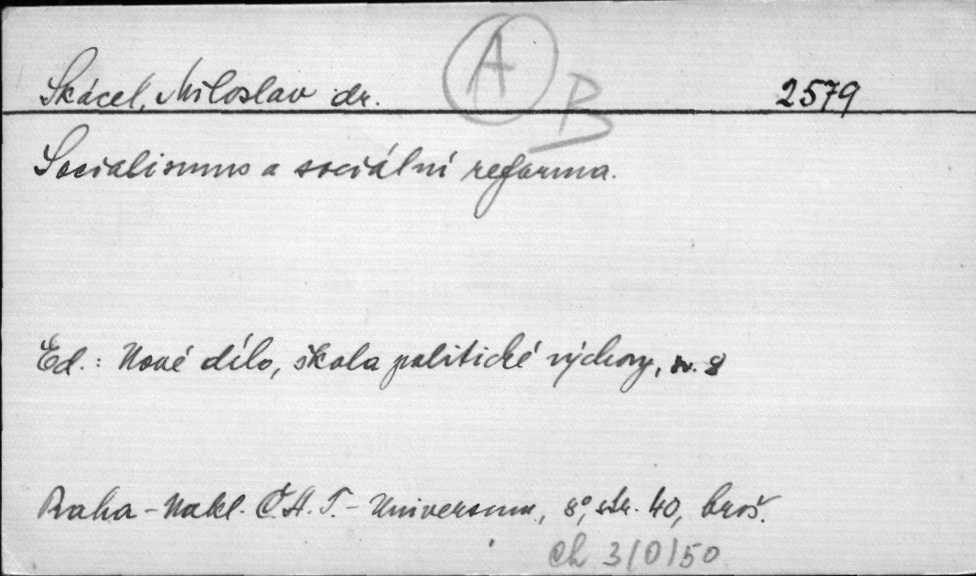 A
Skácel, Miloslav dr. 2579
B
Socialismus a sociální reforma.
Ed.: Nové dílo, škola politické výchovy, sv. 8
Praha - Nakl. Č.A.T. - Universum, 8°, str. 40, brož.
Ch 3/0/50